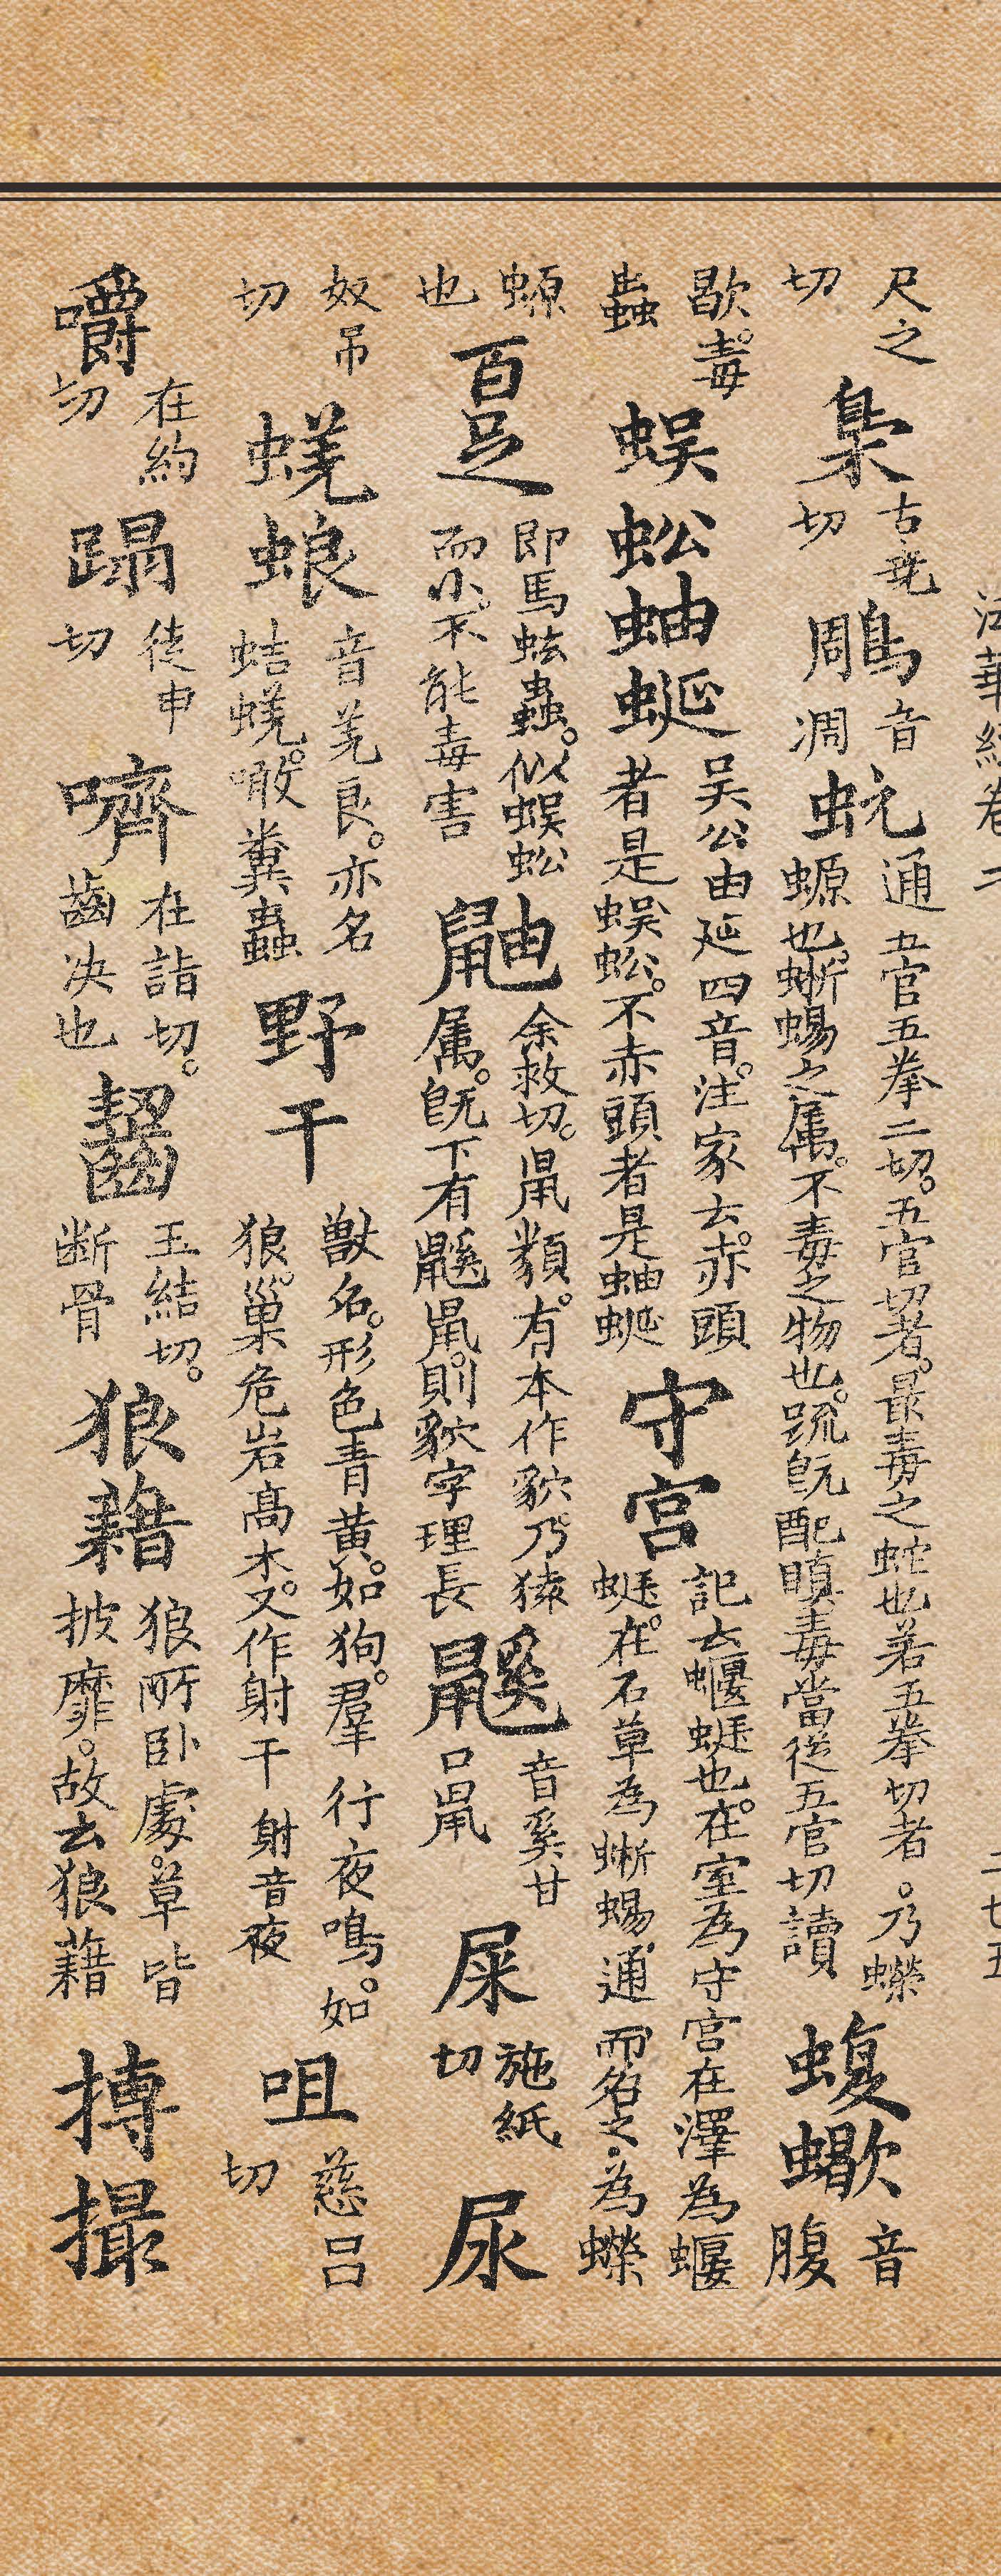 法華經卷二
二七五
尺之切 梟 古堯切 鵰 音凋 蚖 通五官五拳二切。五官切者。最毒之蛇也若五拳切者。乃蠑螈也。蜥蜴之属。不毒之物也。䟽旣配瞋毒當從五官切讀 蝮蠍 音腹
歇。毒蟲 蜈蚣蚰蜒 吴公由延四音。注家云。赤頭者是蜈蚣。不赤頭者是蚰蜒 守宫 記云蝘蜓也。在室為守宫在澤為蝘蜓。在石草為蜥蜴。通而名之。為蠑
螈也 百足 即馬蚿蟲。似蜈蚣而小。不能毒害 鼬 余救切。鼠類。有本作貁。乃猿属。旣下有鼷鼠。則貁字理長 鼷 音奚甘口鼠 屎 施紙切 尿
奴吊切 蜣蜋 音羌良。亦名蛣蜣。噉糞蟲 野干 獸名。形色青黄。如狗。羣行夜鳴。如狼。巢危岩高木。又作射干 射音夜 咀 慈吕切
嚼 在約切 蹋 徒甲切 嚌 在詣切。齒决也 齧 五結切。断骨 狼藉 狼所卧處。草皆披靡。故云狼藉 搏撮